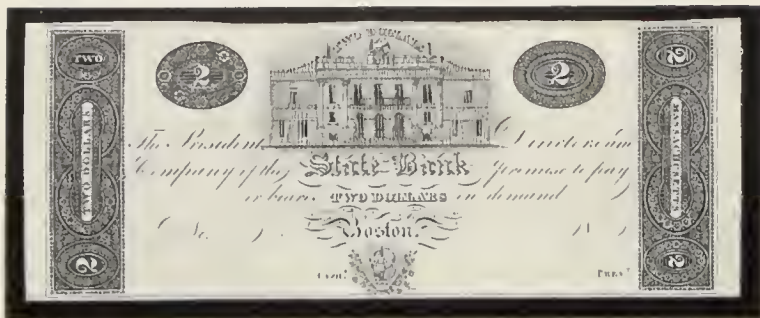 TWO
TWO DOLLARS
2
2
TWO DOLLARS
2
2
MASSACHUSETTS
2
The President
Company of the State Bank promise to pay
or bearer TWO DOLLARS on demand
No.
Boston.
Cash.r
Pres.t